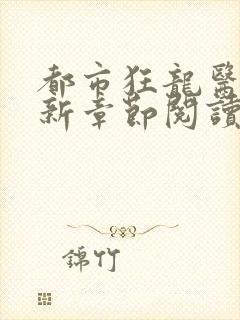 都市狂龍醫
新章節閱讀
錦竹